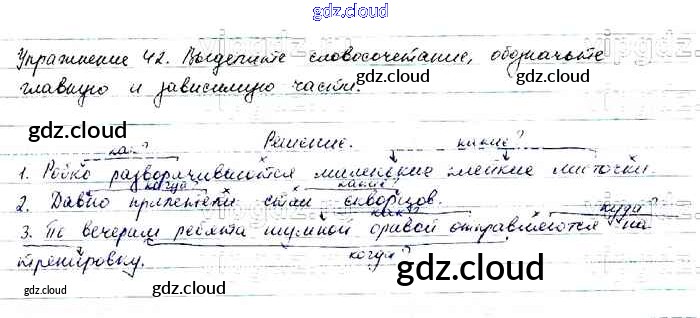 gdz.cloud
Упражнение 42. Выделите словосочетание, обозначьте
gdz.cloud
главную и зависимую части.
gdz.cloud
gdz.cloud
Решение.
как? какие?
1. Робко разворачивающиеся маленькие клейкие листочки.
когда? какие?
2. Давно прилетели стаи скворцов.
как? куда?
3. По вечерам ребята шумной оравой отправляются на
тренировку. когда?
gdz.cloud